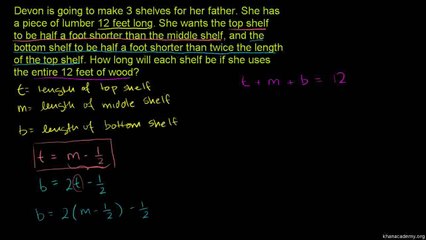 Devon is going to make 3 shelves for her father. She has
a piece of lumber 12 feet long. She wants the top shelf
to be half a foot shorter than the middle shelf, and the
bottom shelf to be half a foot shorter than twice the length
of the top shelf. How long will each shelf be if she uses
the entire 12 feet of wood?
t + m + b = 12
t = length of top shelf
m = length of middle shelf
b = length of bottom shelf
t = m - 1/2
b = 2t - 1/2
b = 2(m - 1/2) - 1/2
khanacademy.org